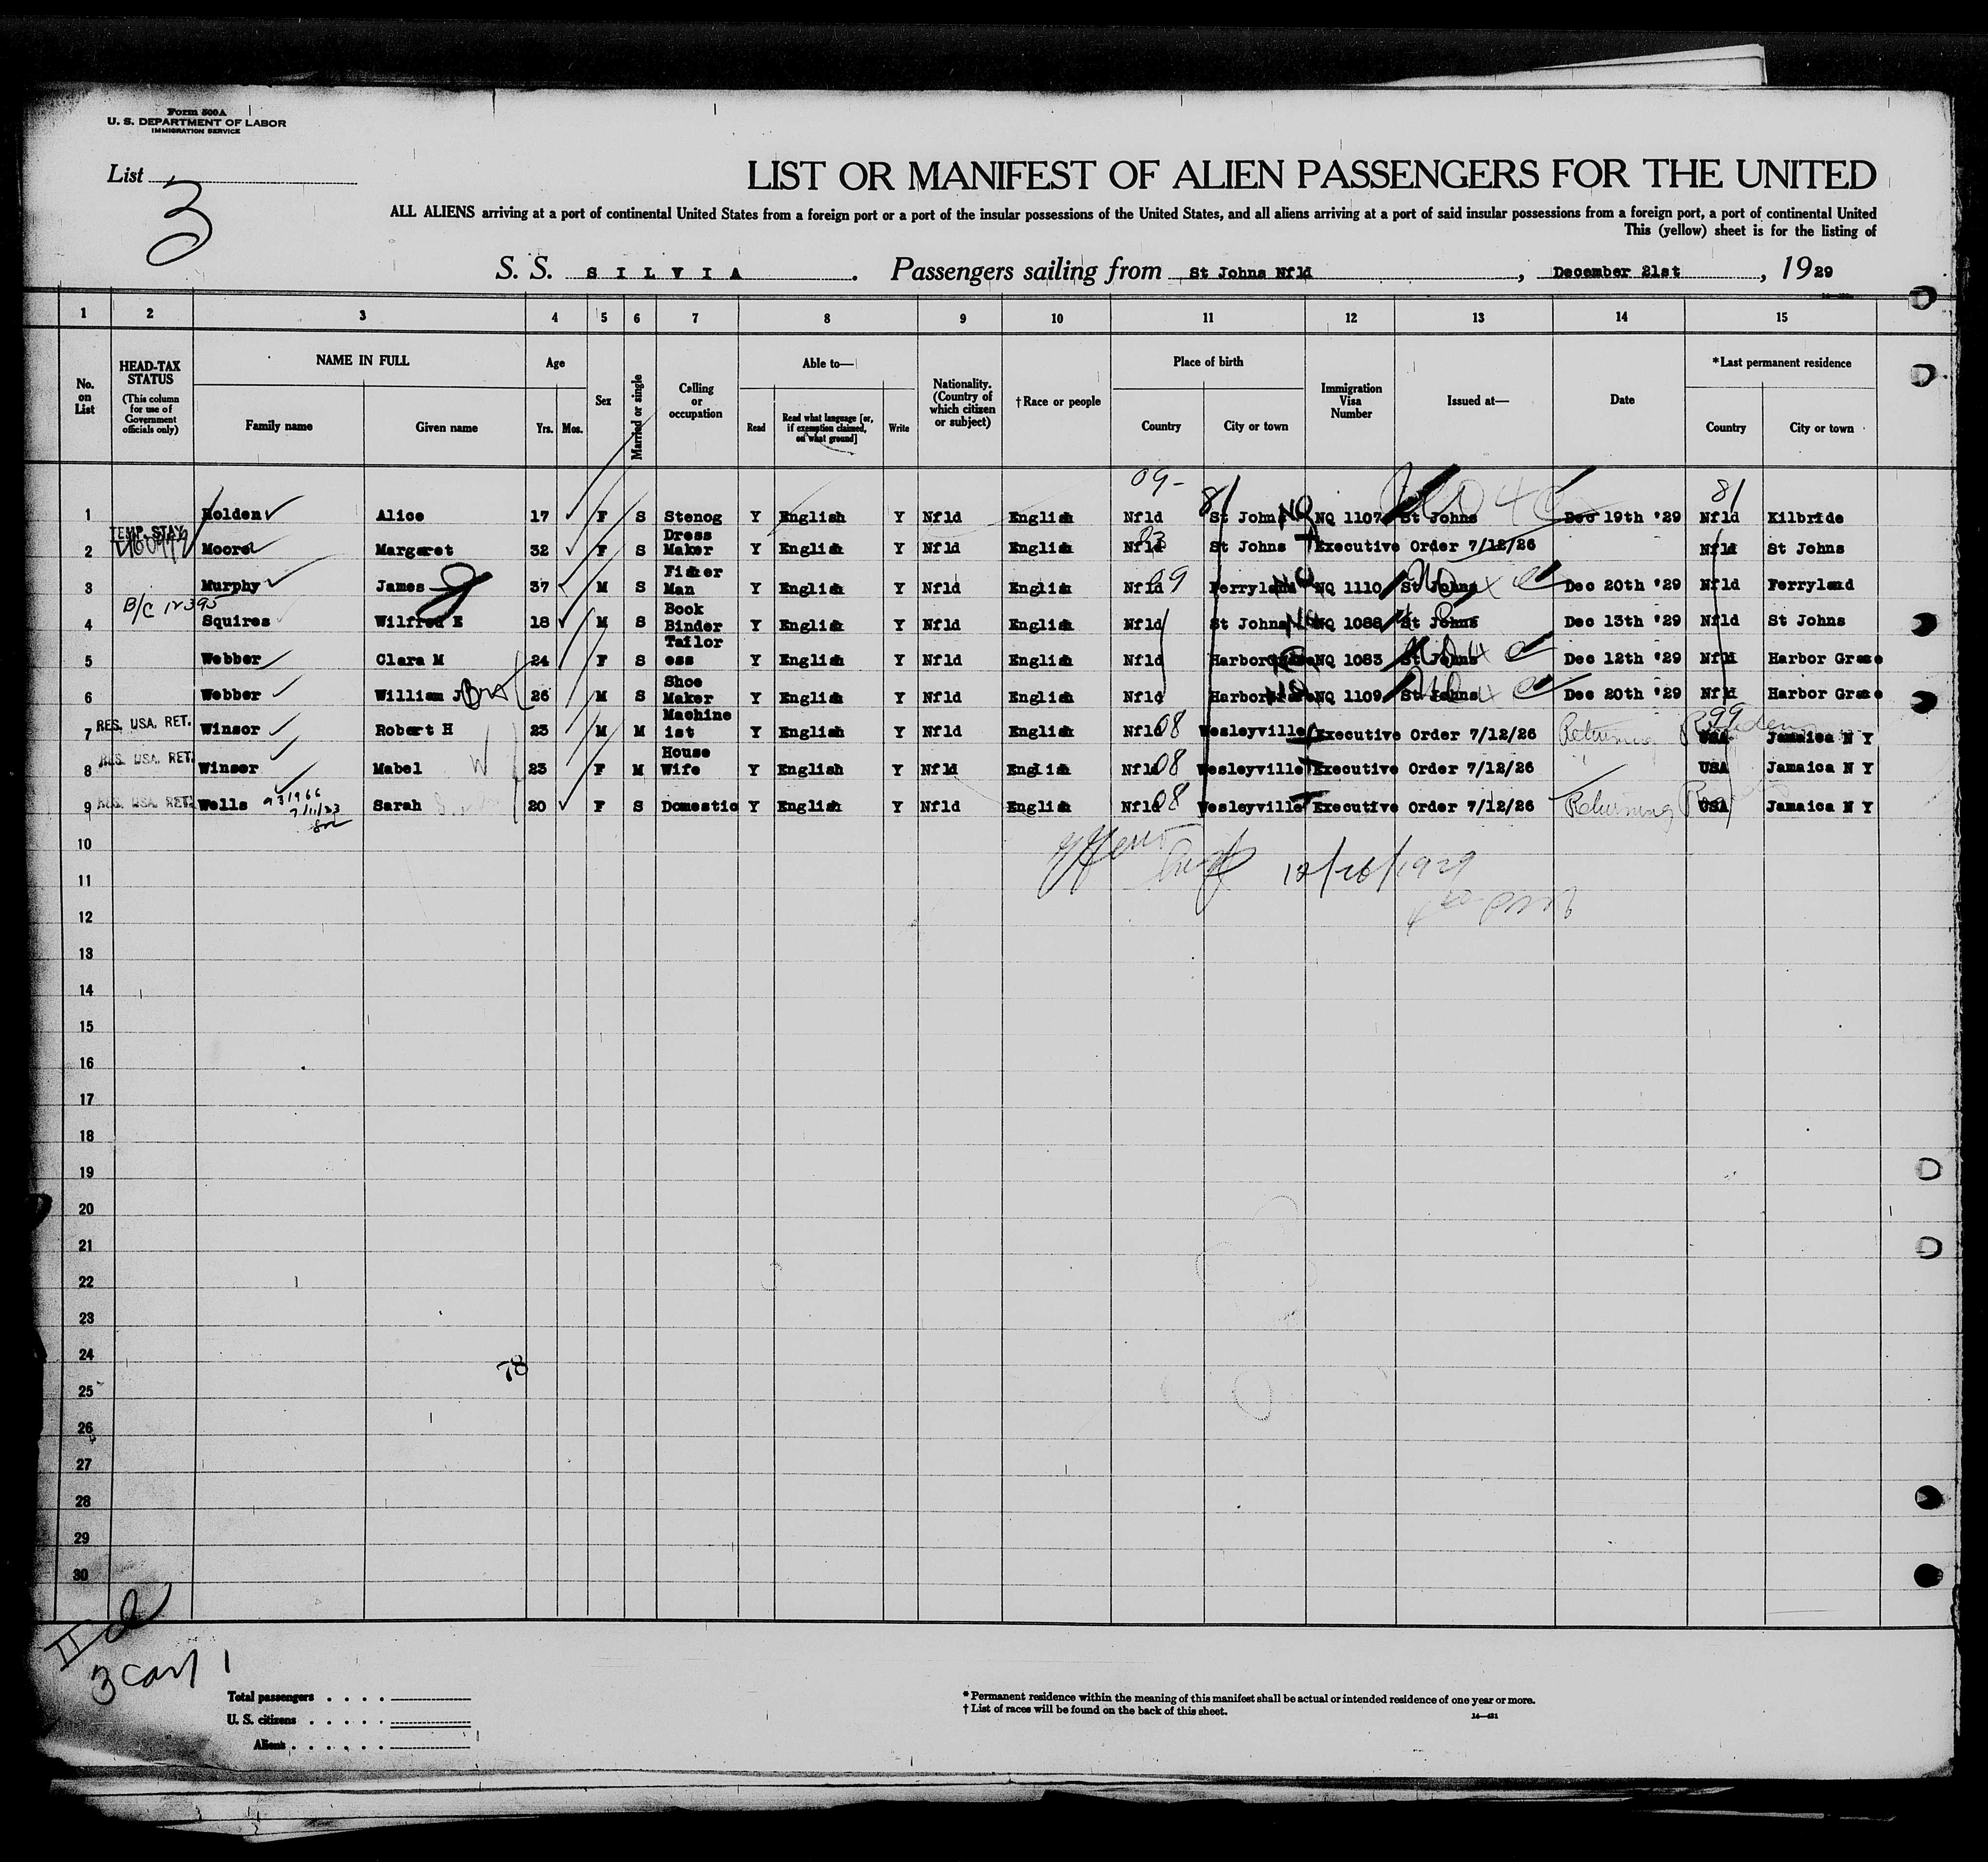 Form 500A
U. S. DEPARTMENT OF LABOR
IMMIGRATION SERVICE
List 3
LIST OR MANIFEST OF ALIEN PASSENGERS FOR THE UNITED
ALL ALIENS arriving at a port of continental United States from a foreign port or a port of the insular possessions of the United States, and all aliens arriving at a port of said insular possessions from a foreign port, a port of continental United
This (yellow) sheet is for the listing of
S. S. SILVIA. Passengers sailing from St Johns Nfld, December 21st, 1929
1 2 3 4 5 6 7 8 9 10 11 12 13 14 15
No. on List
HEAD-TAX STATUS (This column for use of Government officials only)
NAME IN FULL
Family name Given name
Age
Yrs. Mos.
Sex
Married or single
Calling or occupation
Able to—
Read Read what language [or, if exemption claimed, on what ground] Write
Nationality. (Country of which citizen or subject)
†Race or people
Place of birth
Country City or town
Immigration Visa Number
Issued at—
Date
*Last permanent residence
Country City or town
09- 81 81
1 Holden Alice 17 F S Stenog Y English Y Nfld English Nfld St Johns NQ NQ 1107 St Johns Dec 19th '29 Nfld Kilbride
TEMP. STAY
2 Moore Margaret 32 F S Dress Maker Y English Y Nfld English Nfld St Johns Executive Order 7/12/26 Nfld St Johns
3 Murphy James 37 M S Fisher Man Y English Y Nfld English Nfld 09 Ferryland NQ 1110 St Johns Dec 20th '29 Nfld Ferryland
B/C 12395
4 Squires Wilfred E 18 M S Book Binder Y English Y Nfld English Nfld St Johns NQ 1088 St Johns Dec 13th '29 Nfld St Johns
5 Webber Clara M 24 F S Tailor ess Y English Y Nfld English Nfld Harbor Grace NQ 1083 St Johns Dec 12th '29 Nfld Harbor Grace
6 Webber William J Bro 26 M S Shoe Maker Y English Y Nfld English Nfld Harbor Grace NQ 1109 St Johns Dec 20th '29 Nfld Harbor Grace
99
7 RES. USA. RET. Winsor Robert H 23 M M Machine ist Y English Y Nfld English Nfld 08 Wesleyville Executive Order 7/12/26 Returning Resident USA Jamaica N Y
8 RES. USA. RET. Winsor Mabel W 23 F M House Wife Y English Y Nfld English Nfld 08 Wesleyville Executive Order 7/12/26 USA Jamaica N Y
9 RES. USA. RET. Wells Sarah 20 F S Domestic Y English Y Nfld English Nfld 08 Wesleyville Executive Order 7/12/26 Returning USA Jamaica N Y
10
12/26/1929
11
12
13
14
15
16
17
18
19
20
21
22
23
24
78
25
26
27
28
29
30
3 Carl 1
Total passengers
U. S. citizens
Aliens
* Permanent residence within the meaning of this manifest shall be actual or intended residence of one year or more.
† List of races will be found on the back of this sheet.
14—421